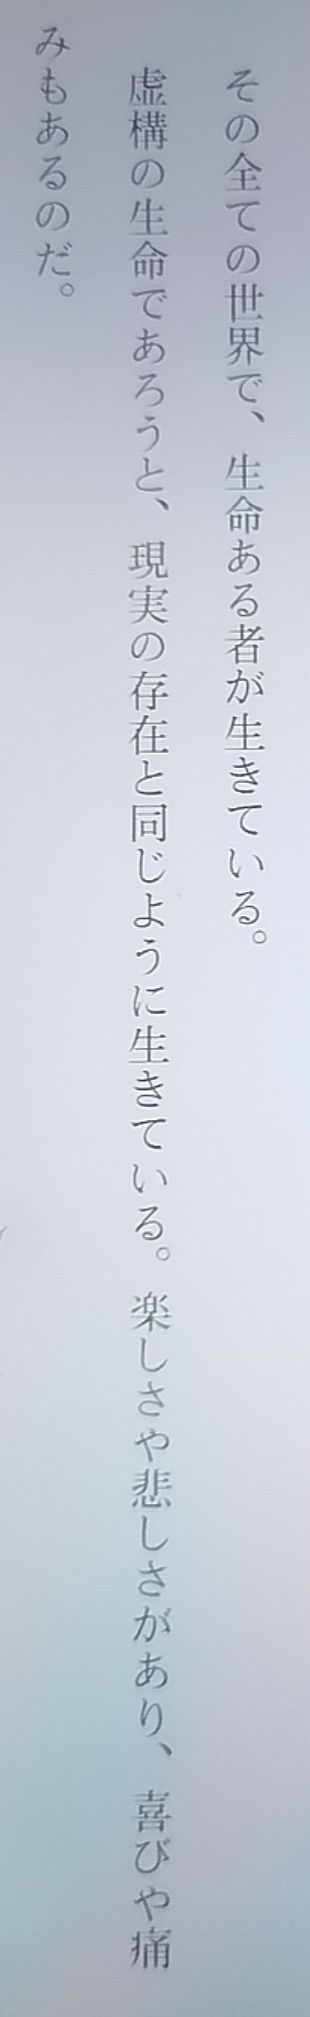 その全ての世界で、生命ある者が生きている。
虚構の生命であろうと、現実の存在と同じように生きている。楽しさや悲しさがあり、喜びや痛
みもあるのだ。